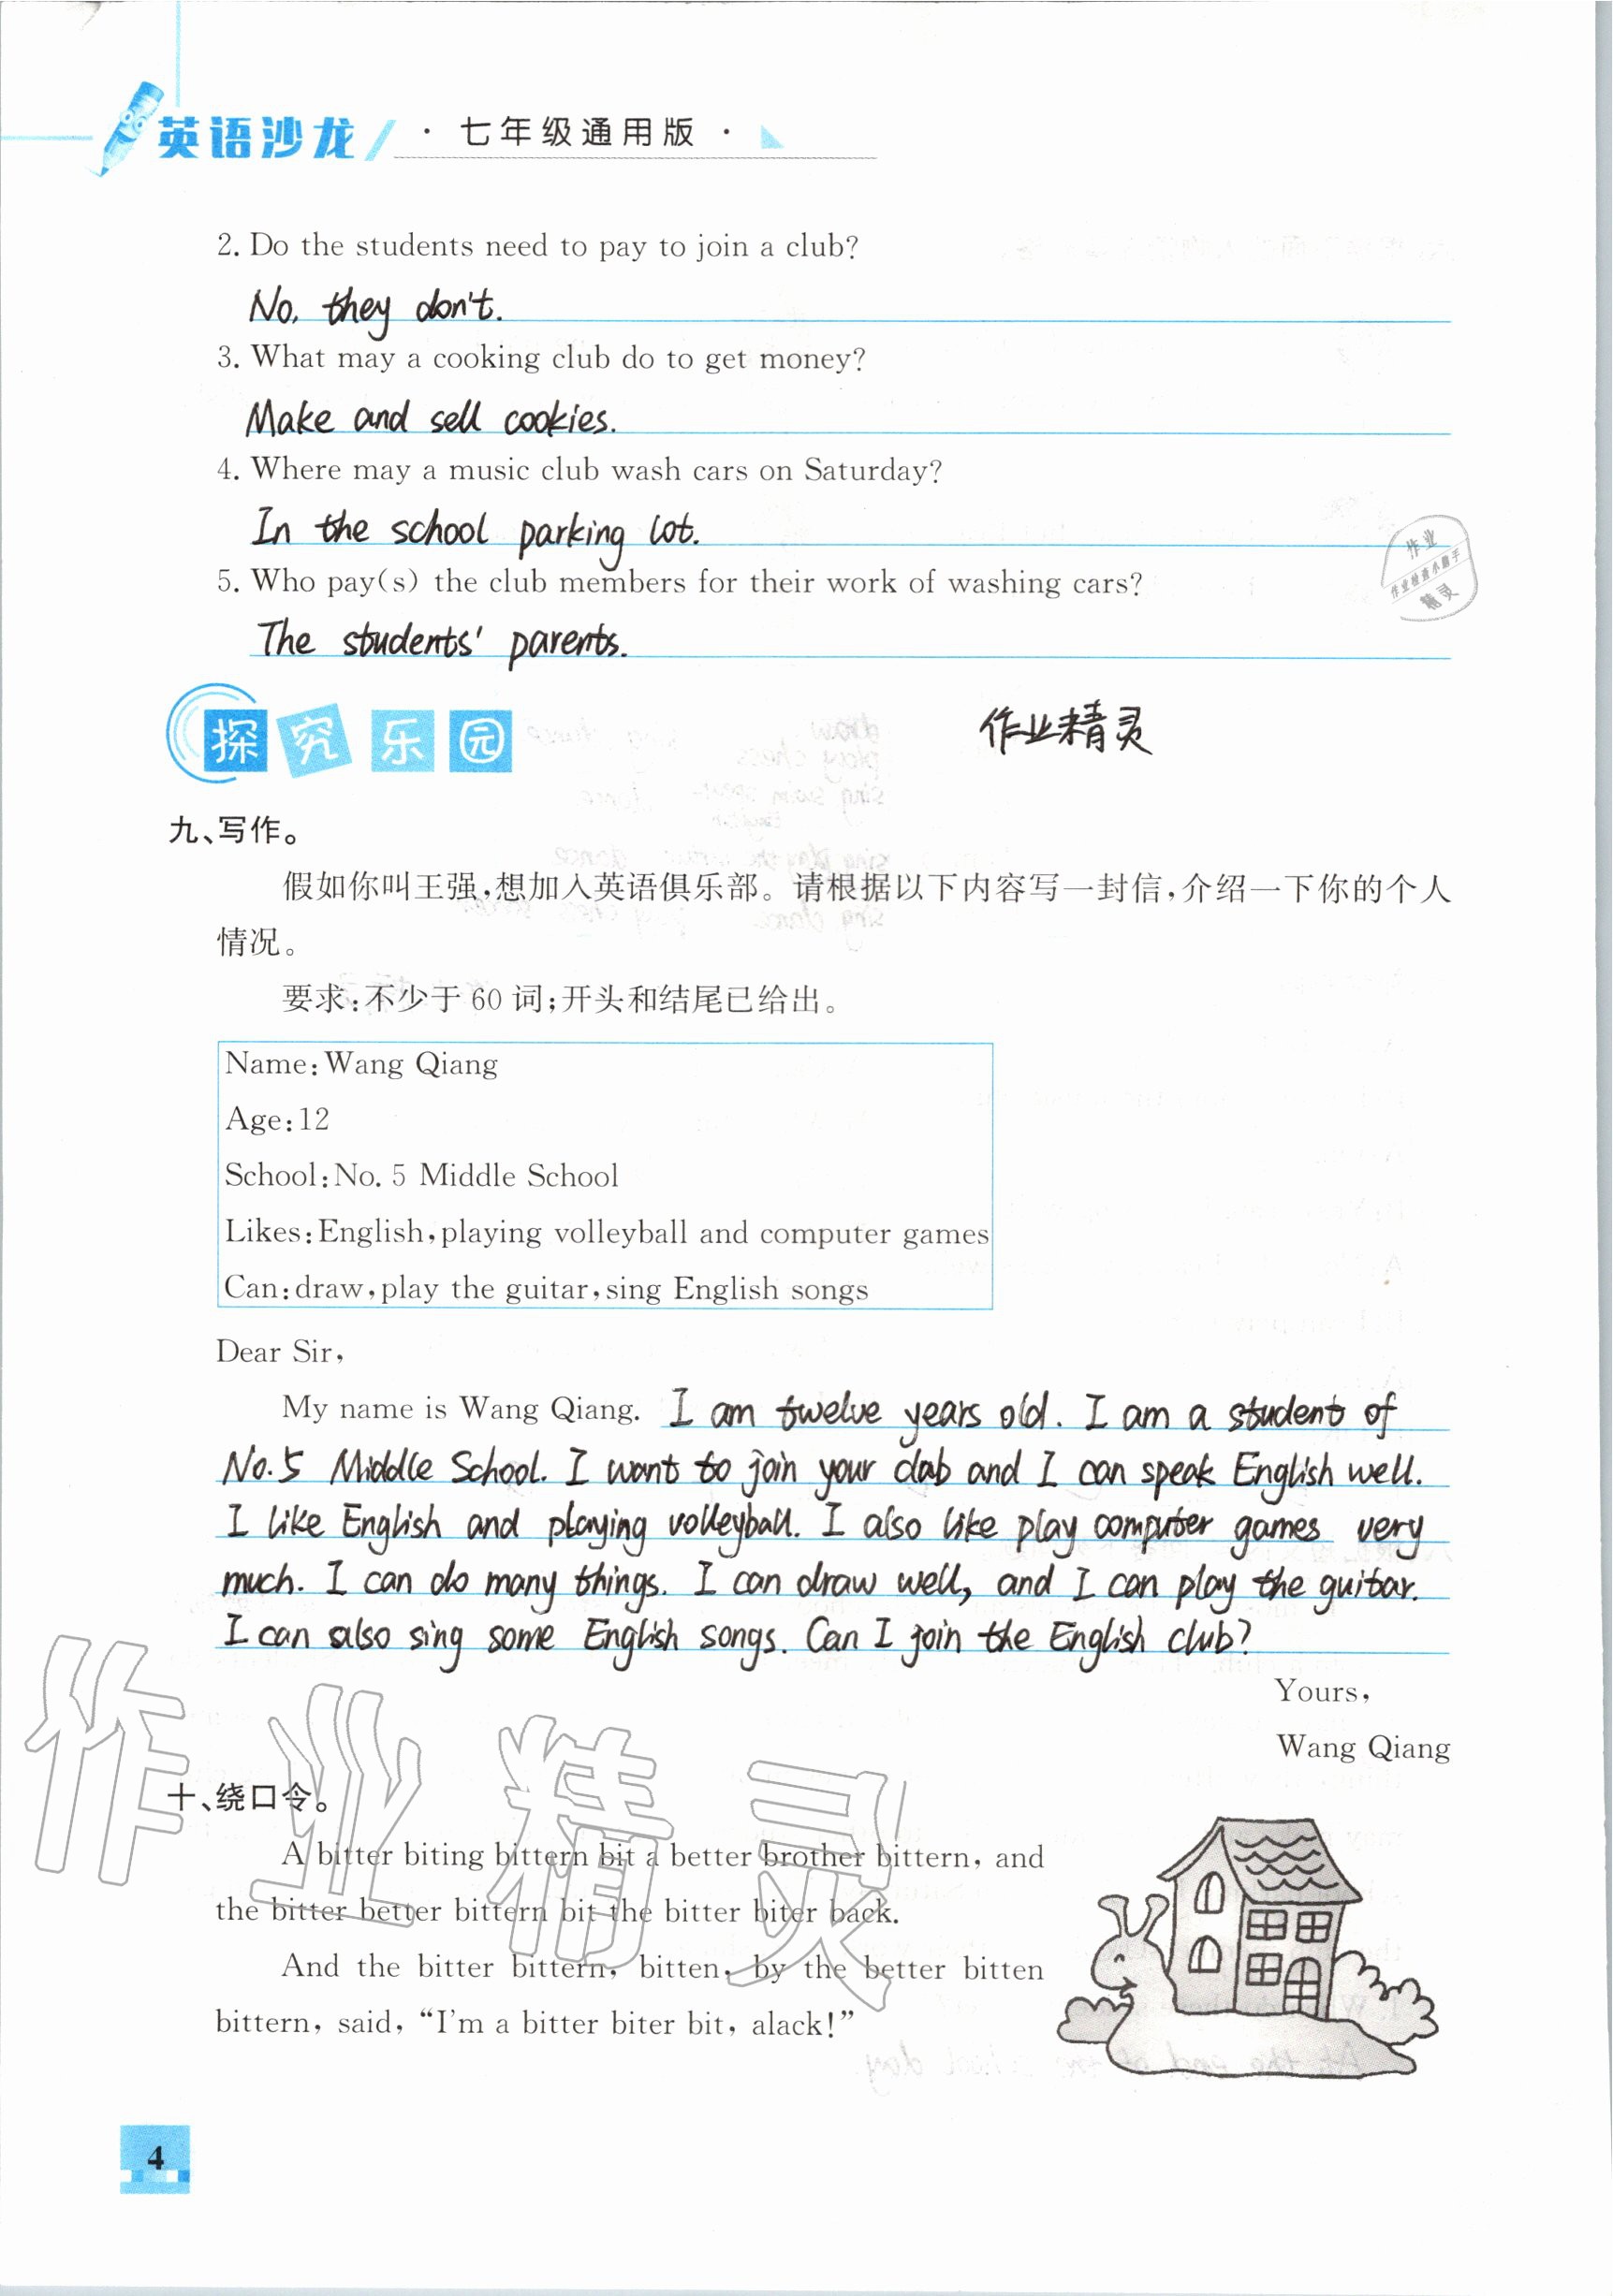 英语沙龙 · 七年级通用版 ·
2. Do the students need to pay to join a club?
No, they don't.
3. What may a cooking club do to get money?
Make and sell cookies.
4. Where may a music club wash cars on Saturday?
In the school parking lot.
5. Who pay(s) the club members for their work of washing cars?
The students' parents.
作业
作业检查小助手
精灵
探究乐园
作业精灵
九、写作。
假如你叫王强,想加入英语俱乐部。请根据以下内容写一封信,介绍一下你的个人
情况。
要求:不少于 60 词;开头和结尾已给出。
Name: Wang Qiang
Age: 12
School: No. 5 Middle School
Likes: English, playing volleyball and computer games
Can: draw, play the guitar, sing English songs
Dear Sir,
My name is Wang Qiang. I am twelve years old. I am a student of
No.5 Middle School. I want to join your club and I can speak English well.
I like English and playing volleyball. I also like play computer games very
much. I can do many things. I can draw well, and I can play the guitar.
I can also sing some English songs. Can I join the English club?
Yours,
Wang Qiang
作业精灵
十、绕口令。
A bitter biting bittern bit a better brother bittern, and
the bitter better bittern bit the bitter biter back.
And the bitter bittern, bitten, by the better bitten
bittern, said, “I'm a bitter biter bit, alack!”
4